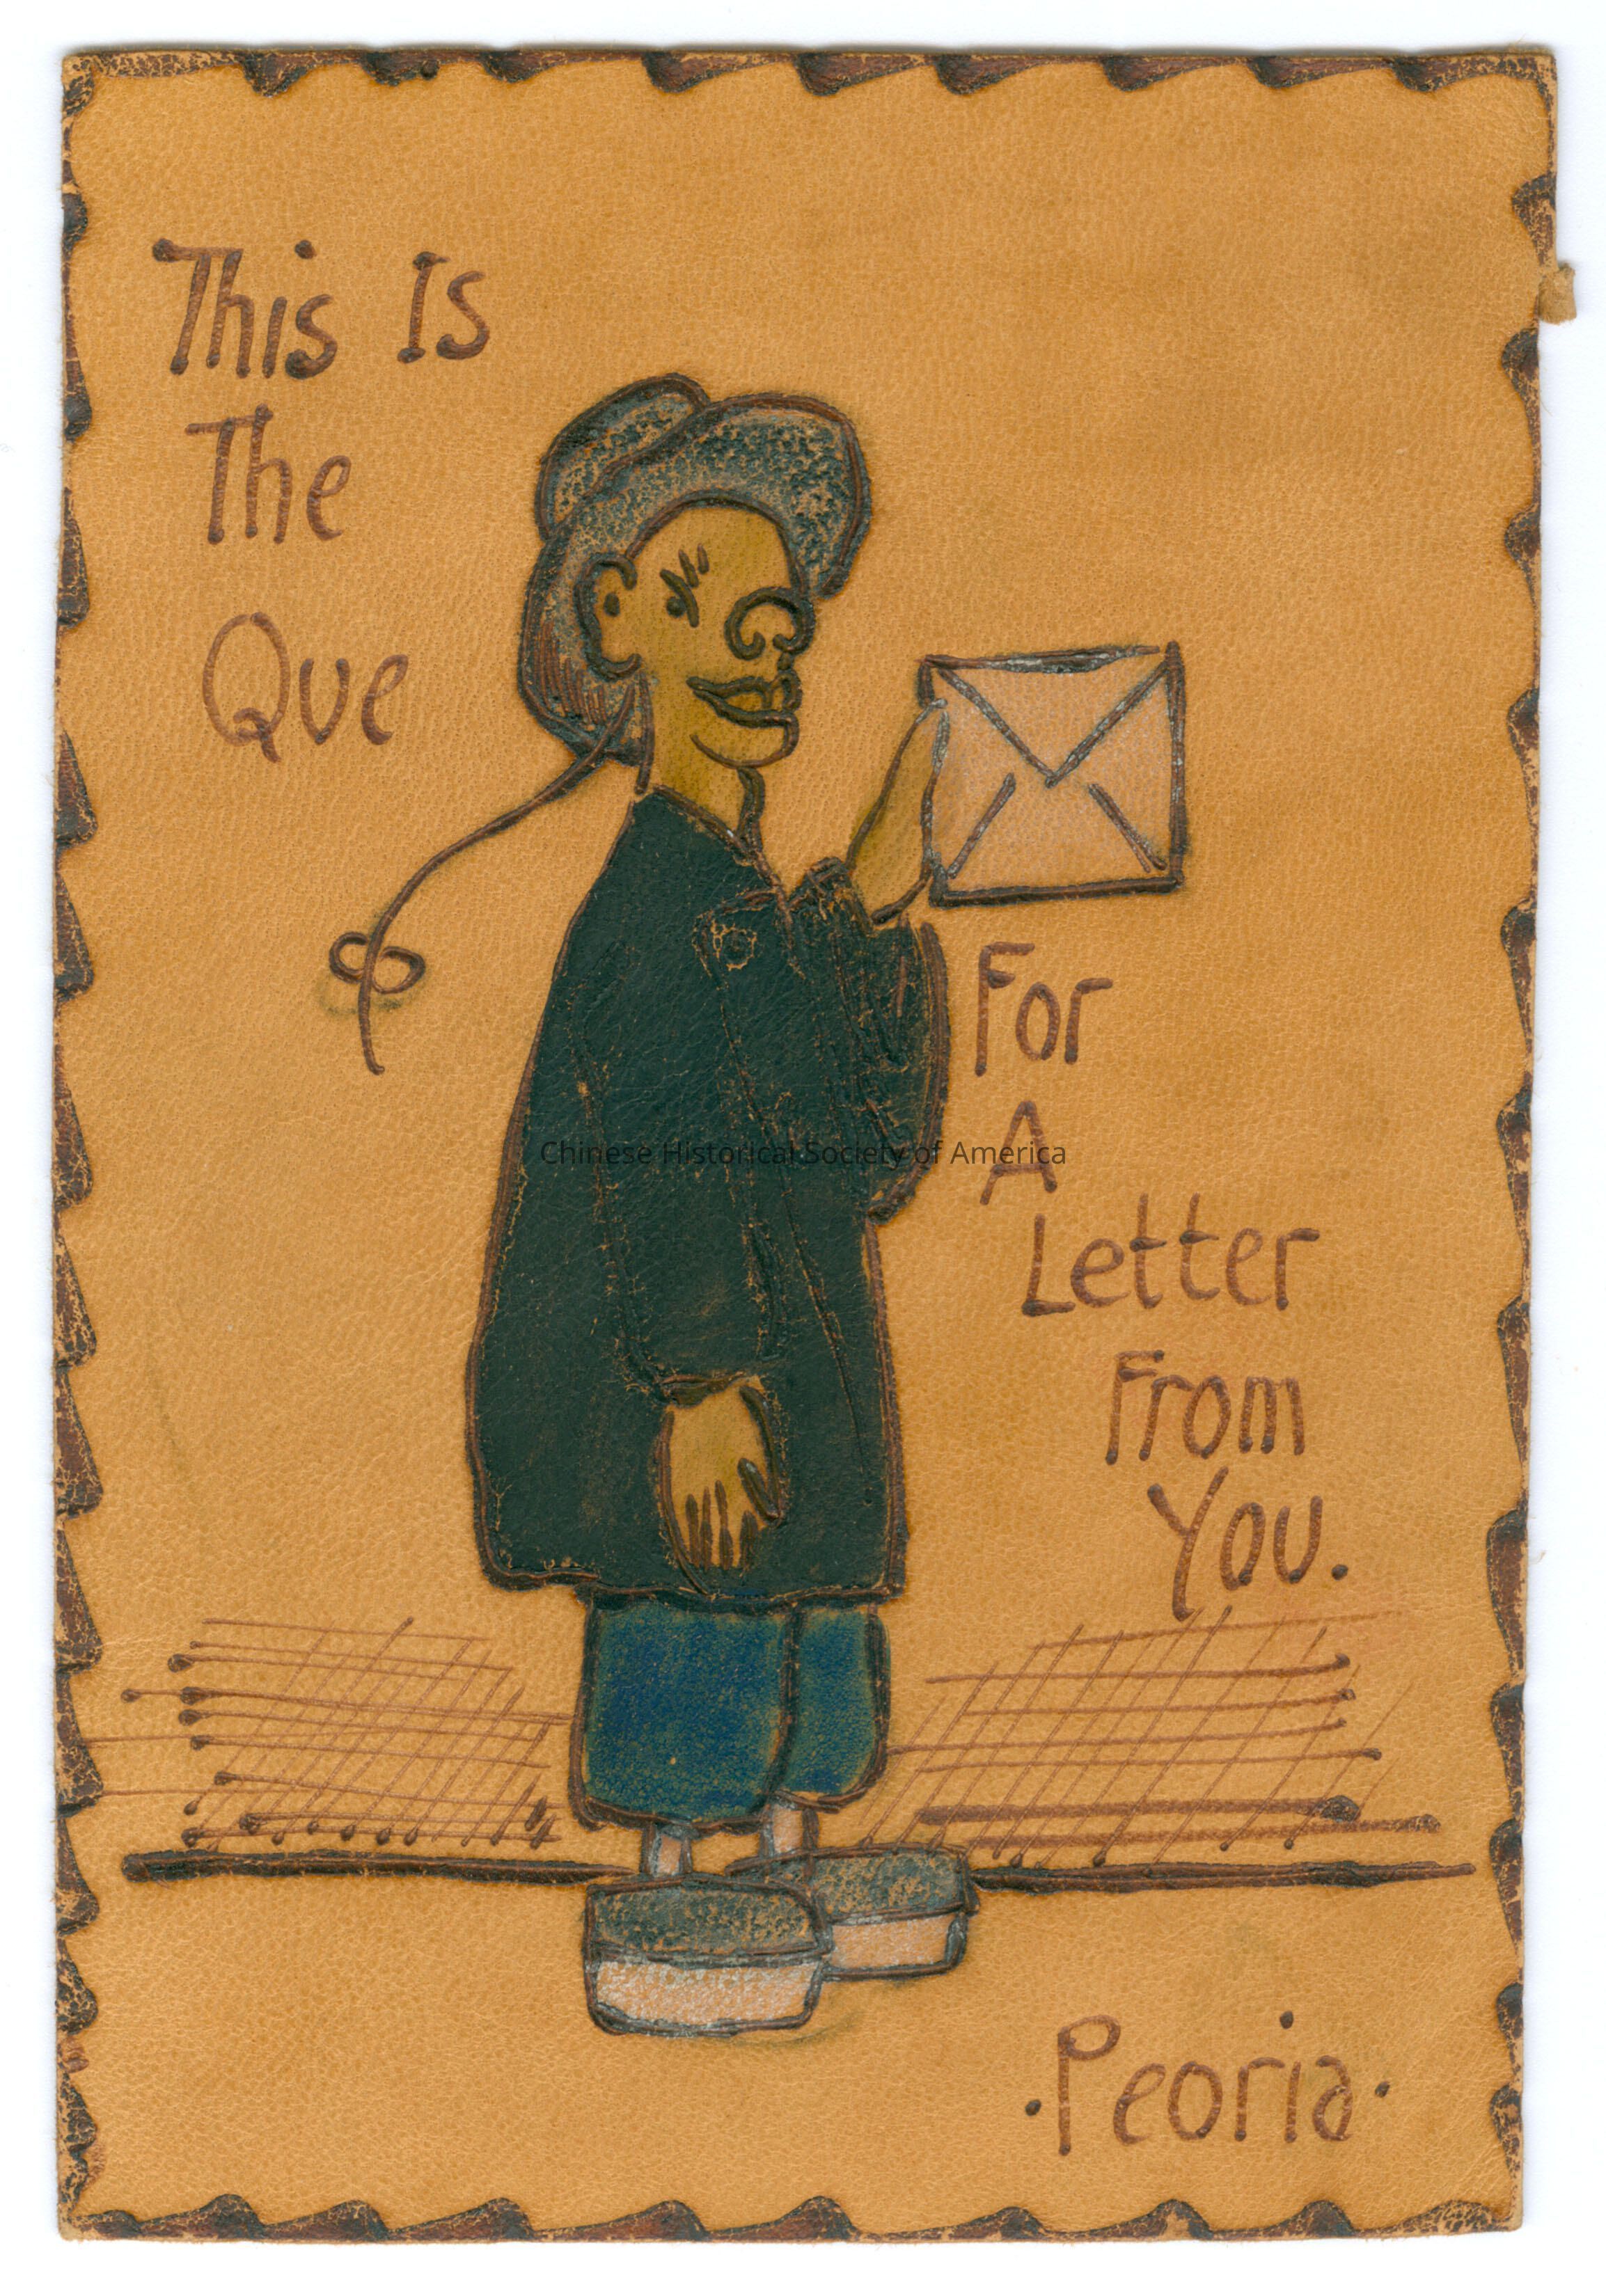 This Is
The
Que
For
A
Letter
From
You.
·Peoria·
Chinese Historical Society of America